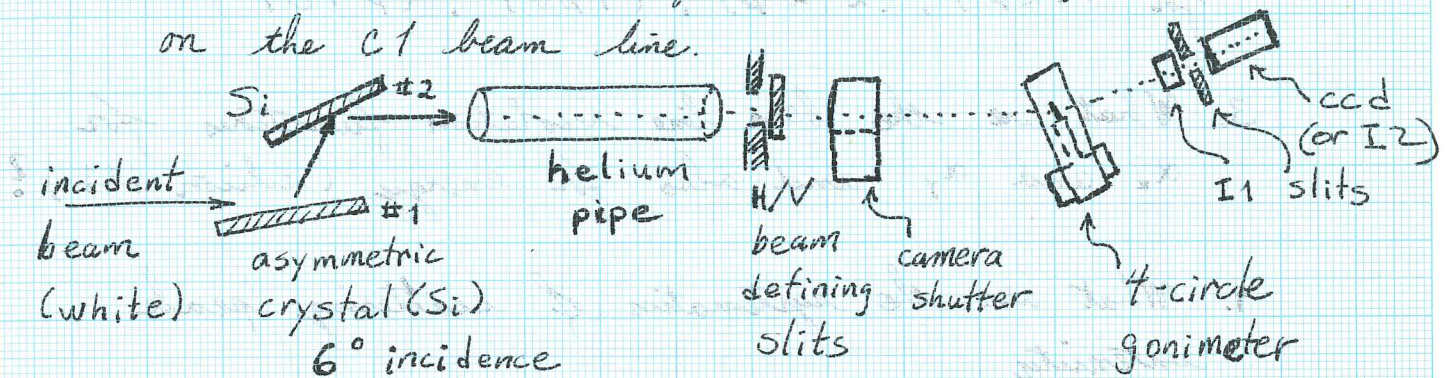 on the C1 beam line.
Si #2
incident
beam
(white)
#1
asymmetric
crystal (Si)
6° incidence
helium
pipe
H/V
beam
defining
slits
camera
shutter
4-circle
gonimeter
I1
slits
ccd
(or I2)